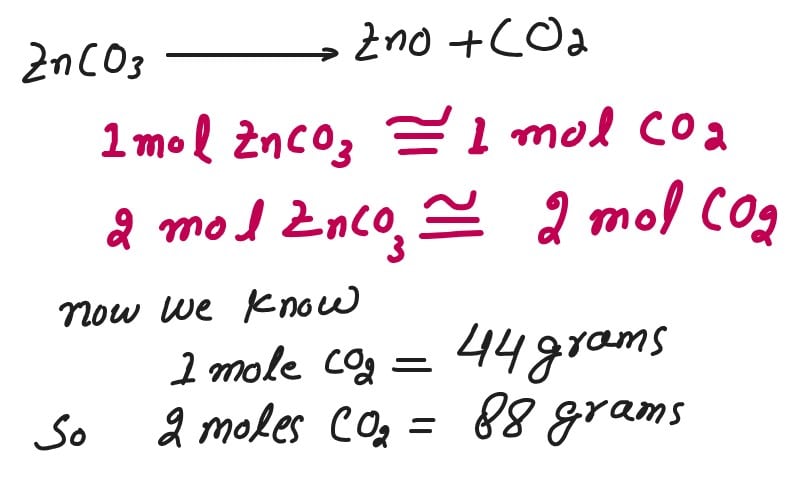 ZnCO₃ ⟶ ZnO + CO₂
1 mol ZnCO₃ ≅ 1 mol CO₂
2 mol ZnCO₃ ≅ 2 mol CO₂
now we know
1 mole CO₂ = 44 grams
So 2 moles CO₂ = 88 grams